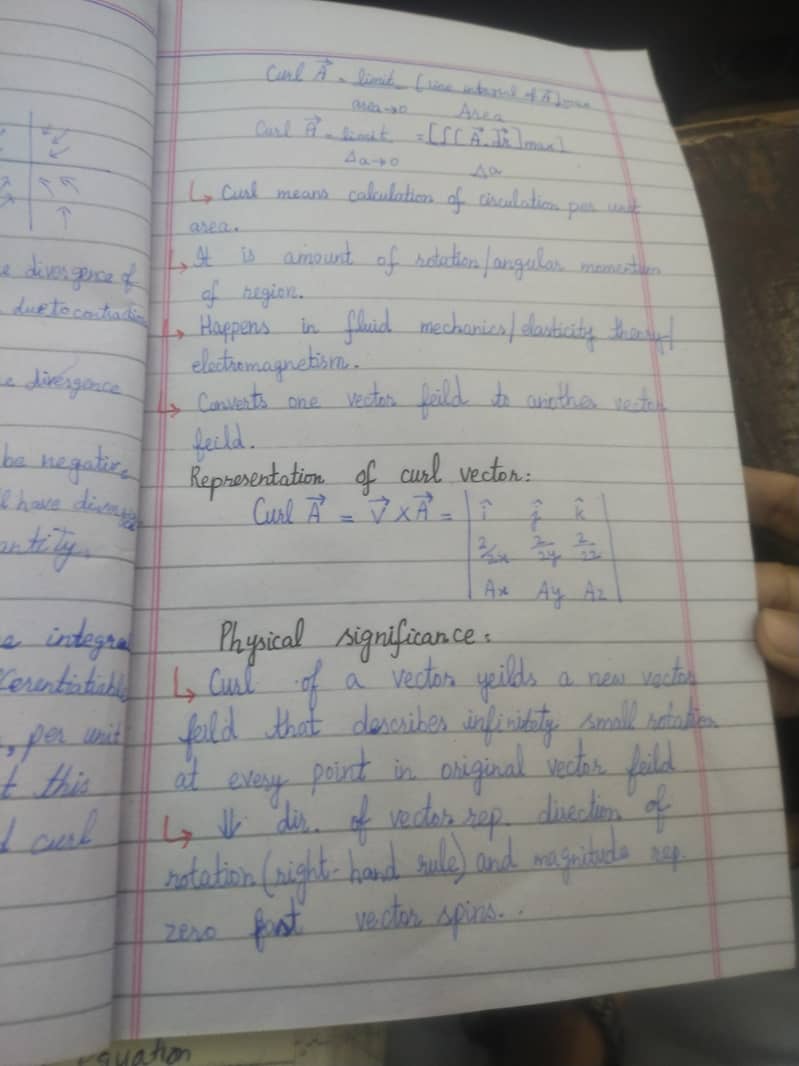 Curl A⃗ = limit [line integral of A⃗]max
area→0 Area
Curl A⃗ = limit = [∫( A⃗. dr⃗ ]max]
Δa→0 Δa
↳ Curl means calculation of circulation per unit
area.
↳ It is amount of rotation/angular momentum
of region.
↳ Happens in fluid mechanics/elasticity theory/
electromagnetism.
↳ Converts one vector feild to another vector
feild.
Representation of curl vector:
Curl A⃗ = ∇⃗ × A⃗ = | î ĵ k̂ |
∂/∂x ∂/∂y ∂/∂z
Ax Ay Az
Physical significance:
↳ Curl of a vector yeilds a new vector
feild that describes infinitely small rotation
at every point in original vector feild
↳ ⇓ dir. of vector rep. direction of
rotation (right-hand rule) and magnitude rep.
zero fast vector spins..
e divergence of
due to contraction
e divergence
be negative
have
antity.
e integral
, per unit
t this
d curl
quation